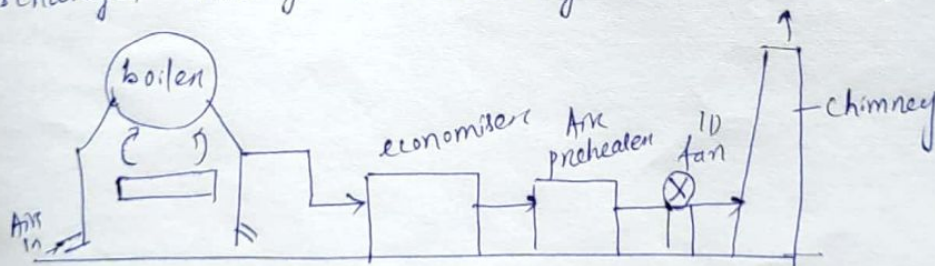 boiler
economiser
Air
preheater
ID
fan
chimney
Air
in